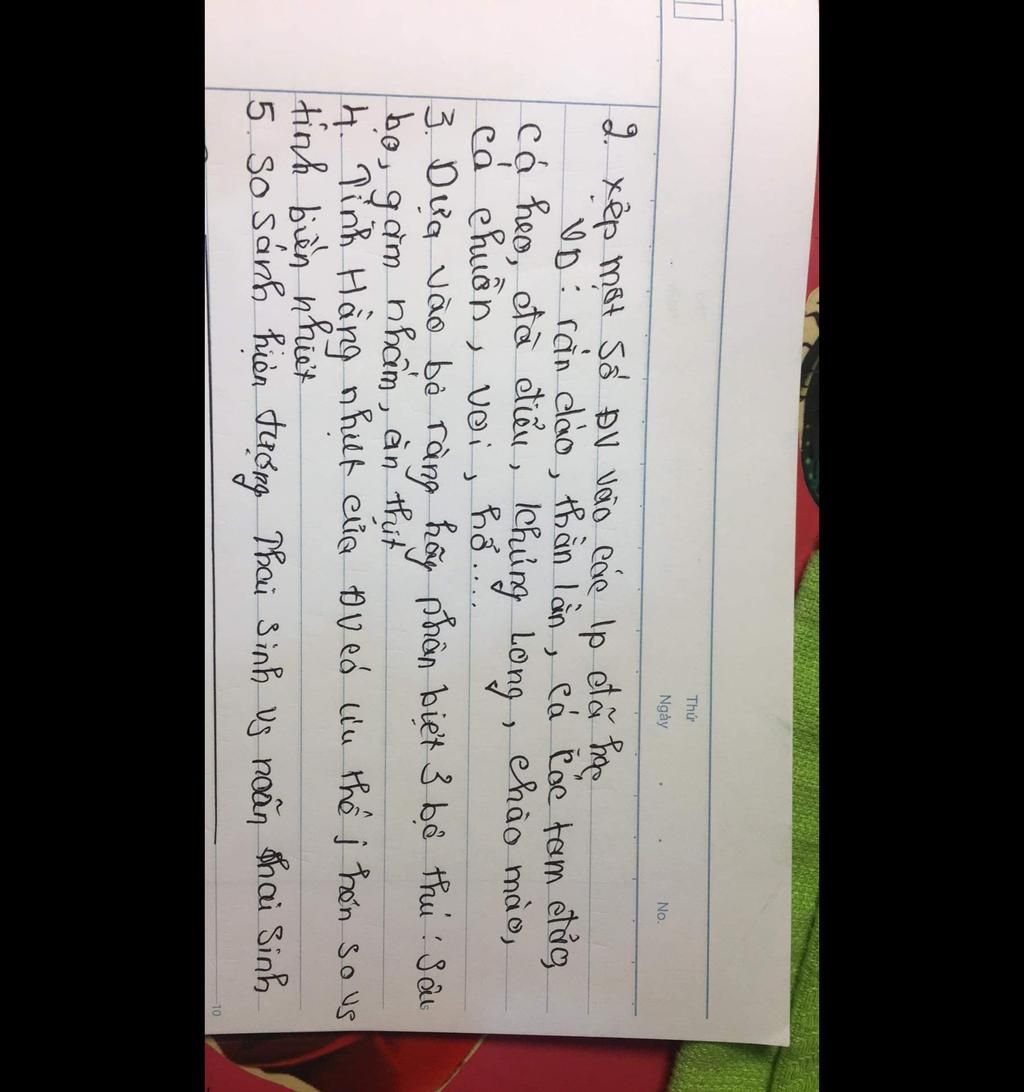 Thứ
Ngày
No.
2. xếp một số ĐV vào các lp đã học
VD: rắn dáo, thằn lằn, cá cóc tam đảo,
cá heo, đà điểu, khủng Long, chào mào,
cá chuồn, voi, hổ....
3. Dựa vào bộ răng hãy phân biệt 3 bộ thú: sâu
bọ, gặm nhấm, ăn thịt
4. Tính Hằng nhiệt của ĐV có ưu thế j hơn so vs
tính biến nhiệt
5. So sánh hiện tượng Thai sinh vs noãn thai sinh
10